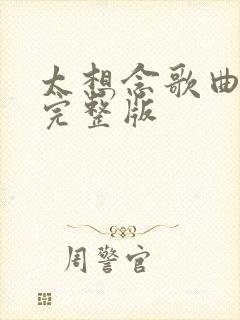 太想念歌曲
完整版
周警官